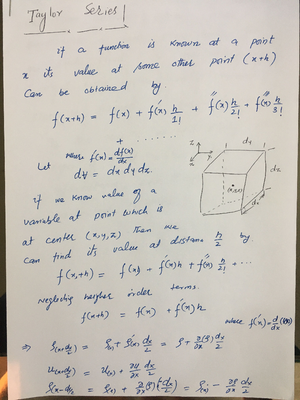 Taylor Series
if a function is known at a point
x its value at some other point (x+h)
can be obtained by.
f(x+h) = f(x) + f'(x) h/1! + f''(x) h/2! + f'''(x) h/3!
+ .......
Let where f'(x) = df(x)/dx
d∀ = dx dy dz.
z
y
x
dy
dz
dx
(x,y,z)
if we know value of a
variable at point which is
at center (x,y,z) then we
can find its value at distance h/2 by.
f(x,+h) = f(x) + f'(x)h + f''(x) h/2! + ...
Neglecting heigher order terms.
f(x+h) = f(x) + f'(x) h
where f'(x) = d/dx (f(x))
⇒ ρ(x+dx/2) = ρ(x) + ρ'(x) dx/2 = ρ + ∂(ρ)/∂x dx/2
u(x+dx/2) = u(x) + ∂u/∂x dx/2
ρ(x-dx/2) = ρ(x) + ∂(ρ)/∂x (-dx/2) = ρ(x) - ∂ρ/∂x dx/2